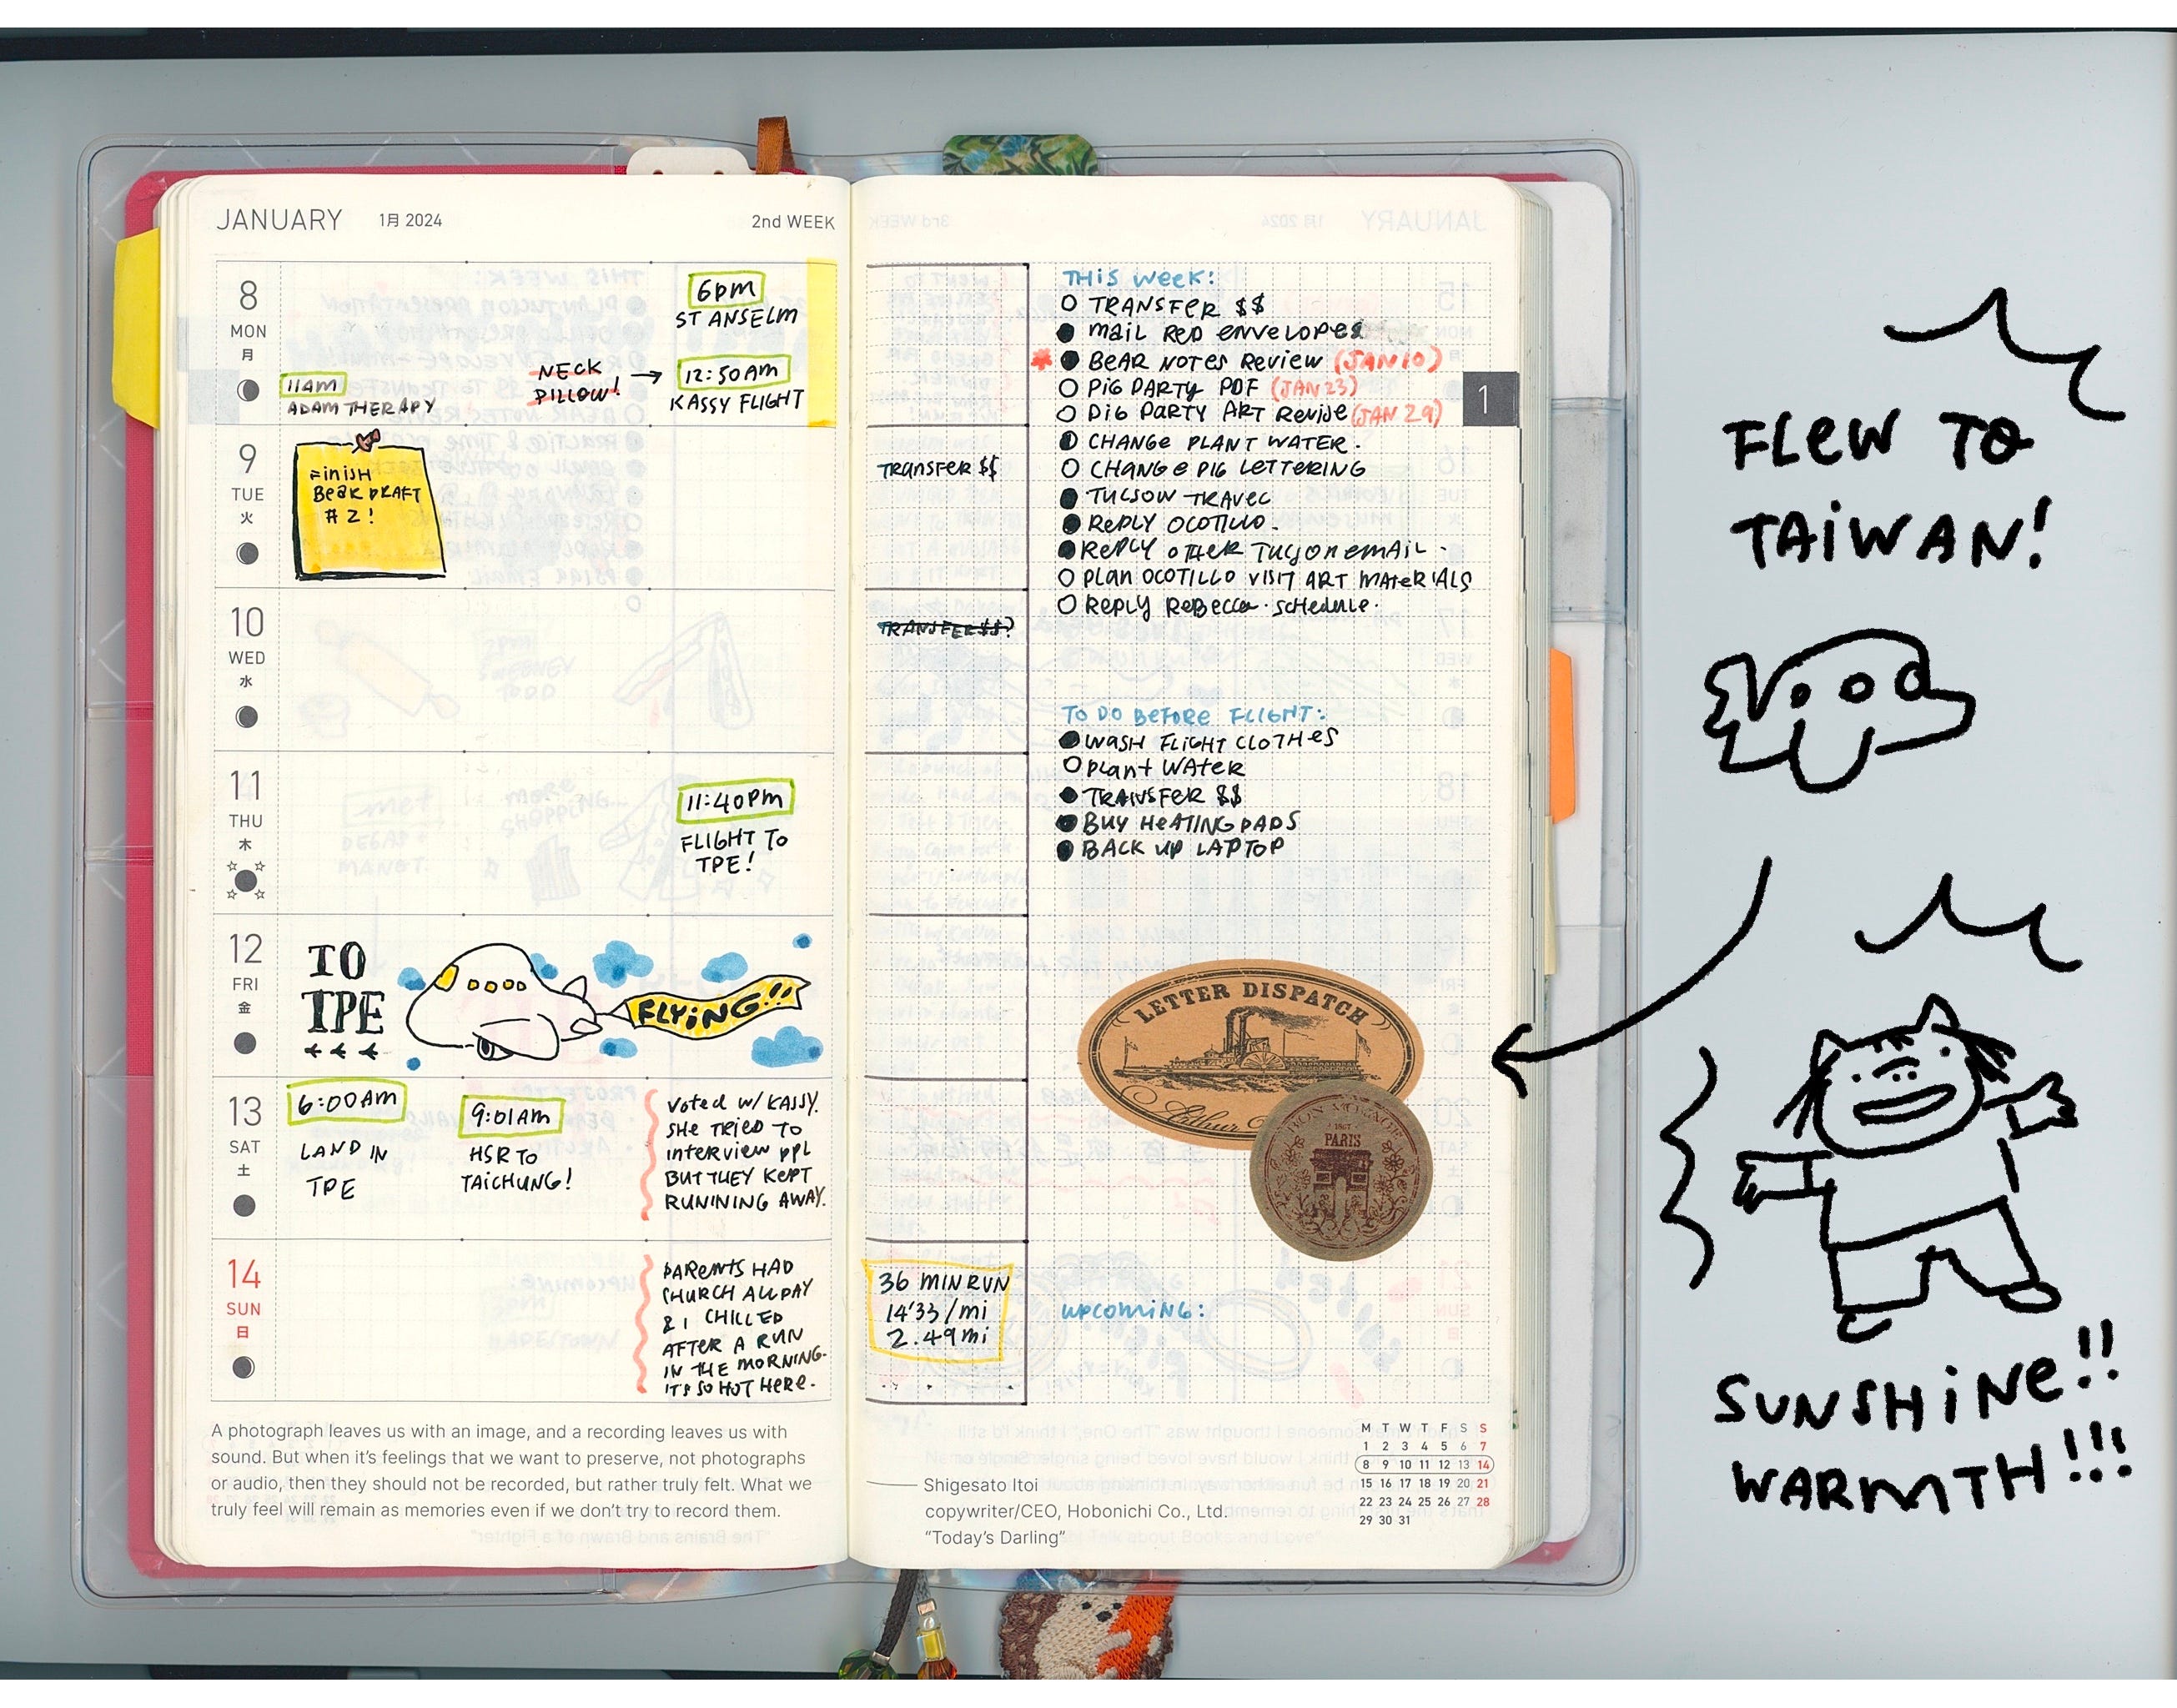 JANUARY 1月 2024 2nd WEEK
8
MON
月
11AM
ADAM THERAPY
NECK
PILLOW!
6pm
ST ANSELM
12:50AM
KASSY FLIGHT
9
TUE
火
FINISH
BEAR DRAFT
#2!
10
WED
水
11
THU
木
11:40PM
FLIGHT TO
TPE!
12
FRI
金
TO
TPE
FLYING!!
13
SAT
土
6:00AM
LAND IN
TPE
9:01AM
HSR TO
TAICHUNG!
VOTED W/ KASSY.
SHE TRIED TO
INTERVIEW PPL
BUT THEY KEPT
RUNNING AWAY.
14
SUN
日
PARENTS HAD
CHURCH ALL DAY
& I CHILLED
AFTER A RUN
IN THE MORNING.
IT'S SO HOT HERE.
A photograph leaves us with an image, and a recording leaves us with
sound. But when it's feelings that we want to preserve, not photographs
or audio, then they should not be recorded, but rather truly felt. What we
truly feel will remain as memories even if we don't try to record them.
TRANSFER $$
TRANSFER $$?
36 MIN RUN
14'33/mi
2.49mi
THIS WEEK:
TRANSFER $$
MAIL RED ENVELOPES
BEAR NOTES REVIEW (JAN 10)
PIG PARTY PDF (JAN 23)
PIG PARTY ART REVISE (JAN 29)
CHANGE PLANT WATER.
CHANGE PIG LETTERING
TUCSON TRAVEL
REPLY OCOTILLO.
REPLY OTHER TUCSON EMAIL.
PLAN OCOTILLO VISIT ART MATERIALS
REPLY REBECCA. SCHEDULE.
1
TO DO BEFORE FLIGHT:
WASH FLIGHT CLOTHES
PLANT WATER
TRANSFER $$
BUY HEATING PADS
BACK UP LAPTOP
LETTER DISPATCH
Arthur
1867
PARIS
UPCOMING:
Shigesato Itoi
copywriter/CEO, Hobonichi Co., Ltd.
"Today's Darling"
M T W T F S S
1 2 3 4 5 6 7
8 9 10 11 12 13 14
15 16 17 18 19 20 21
22 23 24 25 26 27 28
29 30 31
FLEW TO
TAIWAN!
SUNSHINE!!
WARMTH!!!